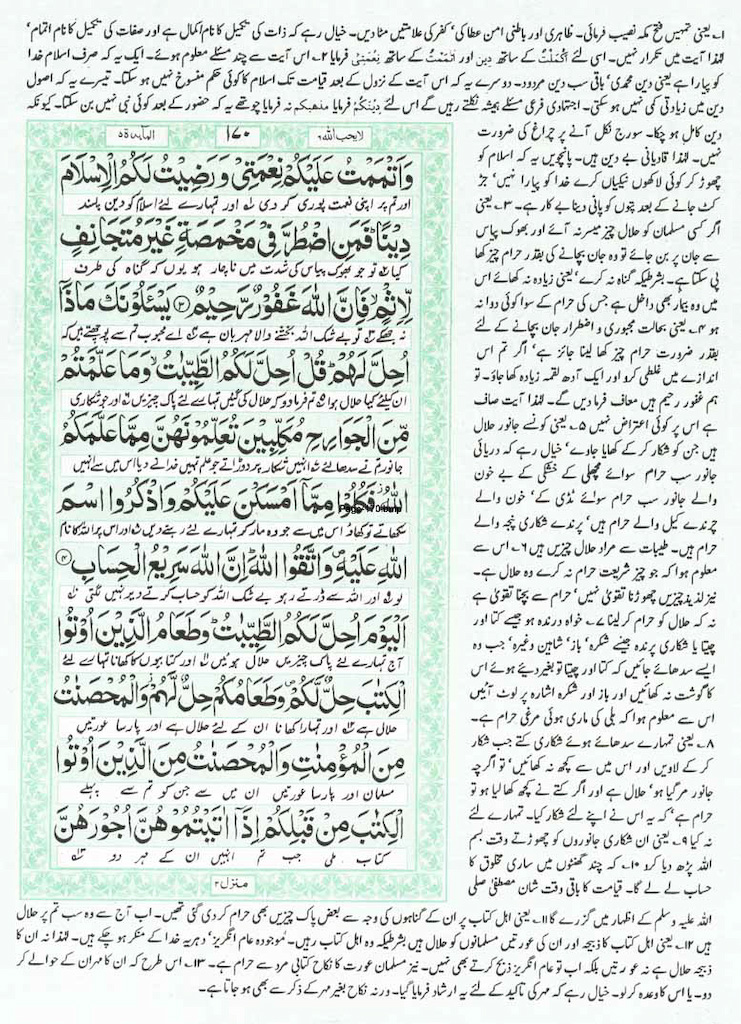 ۱؎ یعنی تمہیں فتح مکہ نصیب فرمائی۔ ظاہری اور باطنی امن عطا کی' کفر کی علامتیں مٹا دیں۔ خیال رہے کہ ذات کی تکمیل کا نام اکمال ہے اور صفات کی تکمیل کا نام اتمام'
لہٰذا آیت میں تکرار نہیں۔ اسی لئے اَکْمَلْتُ کے ساتھ دِین اور اَتْمَمْتُ کے ساتھ نِعْمَتِیْ فرمایا ۲؎ اس آیت سے چند مسئلے معلوم ہوئے۔ ایک یہ کہ صرف اسلام خدا
کو پیارا ہے یعنی دین محمدی' باقی سب دین مردود۔ دوسرے یہ کہ اس آیت کے نزول کے بعد قیامت تک اسلام کا کوئی حکم منسوخ نہیں ہو سکتا۔ تیسرے یہ کہ اصول
دین میں زیادتی کمی نہیں ہو سکتی۔ اجتہادی فرعی مسئلے ہمیشہ نکلتے رہیں گے اس لئے دِیْنَکُمْ فرمایا مذھبکم نہ فرمایا چوتھے یہ کہ حضور کے بعد کوئی نبی نہیں بن سکتا۔ کیونکہ
لا یحب اللہ ۶
۱۷۰
المآئدۃ ۵
وَاَتْمَمْتُ عَلَیْکُمْ نِعْمَتِیْ وَرَضِیْتُ لَکُمُ الْاِسْلَامَ
اور تم پر اپنی نعمت پوری کر دی اور تمہارے لئے اسلام کو دین پسند
دِیْنًا فَمَنِ اضْطُرَّ فِیْ مَخْمَصَةٍ غَیْرَ مُتَجَانِفٍ
کیا تو جو بھوک پیاس کی شدت میں ناچار ہو یوں کہ گناہ کی طرف
لِّاِثْمٍ فَاِنَّ اللّٰهَ غَفُوْرٌ رَّحِیْمٌ ۳ یَسْـَٔلُوْنَكَ مَاذَاۤ
نہ جھکے تو بے شک اللہ بخشنے والا مہربان ہے اے محبوب تم سے پوچھتے ہیں کہ
اُحِلَّ لَهُمْ قُلْ اُحِلَّ لَکُمُ الطَّیِّبٰتُ وَمَا عَلَّمْتُمْ
ان کیلئے کیا حلال ہوا تم فرما دو کہ حلال کی گئیں تمہارے لئے پاک چیزیں اور جو شکاری
مِّنَ الْجَوَارِحِ مُکَلِّبِیْنَ تُعَلِّمُوْنَهُنَّ مِمَّا عَلَّمَکُمُ
جانور تم نے سدھا لئے انہیں شکار پر دوڑاتے جو علم تمہیں خدا نے دیا اس میں سے انہیں
اللّٰهُ فَکُلُوْا مِمَّاۤ اَمْسَکْنَ عَلَیْکُمْ وَاذْکُرُوا اسْمَ
سکھاتے تو کھاؤ اس میں سے جو وہ مار کر تمہارے لئے رہنے دیں اور اس پر اللہ کا نام
اللّٰهِ عَلَیْهِ وَاتَّقُوا اللّٰهَ اِنَّ اللّٰهَ سَرِیْعُ الْحِسَابِ ۴
لو اور اللہ سے ڈرتے رہو بے شک اللہ کو حساب کرتے دیر نہیں لگتی
اَلْیَوْمَ اُحِلَّ لَکُمُ الطَّیِّبٰتُ وَطَعَامُ الَّذِیْنَ اُوْتُوا
آج تمہارے لئے پاک چیزیں حلال ہوئیں اور کتابیوں کا کھانا تمہارے لئے
الْکِتٰبَ حِلٌّ لَّکُمْ وَطَعَامُکُمْ حِلٌّ لَّهُمْ وَالْمُحْصَنٰتُ
حلال ہے اور تمہارا کھانا ان کے لئے حلال ہے اور پارسا عورتیں
مِنَ الْمُؤْمِنٰتِ وَالْمُحْصَنٰتُ مِنَ الَّذِیْنَ اُوْتُوا
مسلمان اور پارسا عورتیں ان میں سے جن کو تم سے پہلے
الْکِتٰبَ مِنْ قَبْلِکُمْ اِذَاۤ اٰتَیْتُمُوْهُنَّ اُجُوْرَهُنَّ
کتاب ملی جب تم انہیں ان کے مہر دو
منزل ۲
دین کامل ہو چکا۔ سورج نکل آنے پر چراغ کی ضرورت
نہیں۔ لہٰذا قادیانی بے دین ہیں۔ پانچویں یہ کہ اسلام کو
چھوڑ کر کوئی لاکھوں نیکیاں کرے خدا کو پیارا نہیں' جڑ
کٹ جانے کے بعد پتوں کو پانی دینا بے کار ہے۔ ۳؎ یعنی
اگر کسی مسلمان کو حلال چیز میسر نہ آئے اور بھوک پیاس
سے جان پر بن جائے تو وہ جان بچانے کی بقدر حرام چیز کھا
پی سکتا ہے۔ بشرطیکہ گناہ نہ کرے' یعنی زیادہ نہ کھائے اس
میں وہ بیمار بھی داخل ہے جس کی حرام کے سوا کوئی دوا نہ
ہو ۴؎ یعنی بحالت مجبوری و اضطرار جان بچانے کے لئے
بقدر ضرورت حرام چیز کھا لینا جائز ہے' اگر تم اس
اندازے میں غلطی کرو اور ایک آدھ لقمہ زیادہ کھا جاؤ۔ تو
ہم غفور رحیم ہیں معاف فرما دیں گے۔ لہٰذا آیت صاف
ہے اس پر کوئی اعتراض نہیں ۵؎ یعنی کونسے جانور حلال
ہیں جن کو شکار کر کے کھایا جاوے' خیال رہے کہ دریائی
جانور سب حرام سوائے مچھلی کے خشکی کے بے خون
والے جانور سب حرام سوائے ٹڈی کے' خون والے
چرندے کیل والے حرام ہیں' پرندے شکاری پنجہ والے
حرام ہیں۔ طیبات سے مراد حلال چیزیں ہیں ۶؎ اس سے
معلوم ہوا کہ جو چیز شریعت حرام نہ کرے وہ حلال ہے۔
نیز لذیذ چیزیں چھوڑنا تقویٰ نہیں' حرام سے بچنا تقویٰ ہے
نہ کہ حلال کو حرام کر لینا ۷؎ خواہ درندہ ہو جیسے کتا اور
چیتا یا شکاری پرندہ جیسے شکرہ' باز' شاہین وغیرہ' جب وہ
ایسے سدھائے جائیں کہ کتا اور چیتا تو بغیر دیئے ہوئے اس
کا گوشت نہ کھائیں اور باز اور شکرہ اشارہ پر لوٹ آئیں
اس سے معلوم ہوا کہ بلی کی ماری ہوئی مرغی حرام ہے۔
۸؎ یعنی تمہارے سدھائے ہوئے شکاری کتے جب شکار
کر کے لاویں اور اس میں سے کچھ نہ کھائیں' تو اگرچہ
جانور مر گیا ہو' حلال ہے اور اگر کتے نے کچھ کھا لیا ہو تو
حرام ہے' کہ یہ اس نے اپنے لئے شکار کیا۔ تمہارے لئے
نہ کیا ۹؎ یعنی ان شکاری جانوروں کو چھوڑتے وقت بسم
اللہ پڑھ دیا کرو ۱۰؎ کہ چند گھنٹوں میں ساری مخلوق کا
حساب لے لے گا۔ قیامت کا باقی وقت شان مصطفیٰ صلی
اللہ علیہ وسلم کے اظہار میں گزرے گا ۱۱؎ یعنی اہل کتاب پر ان کے گناہوں کی وجہ سے بعض پاک چیزیں بھی حرام کر دی گئی تھیں۔ اب آج سے وہ سب تم پر حلال
ہیں ۱۲؎ یعنی اہل کتاب کا ذبیحہ اور ان کی عورتیں مسلمانوں کو حلال ہیں بشرطیکہ وہ اہل کتاب رہیں۔ موجودہ عام انگریز' دہریہ خدا کے منکر ہو چکے ہیں۔ لہٰذا نہ ان کا
ذبیحہ حلال ہے نہ عورتیں بلکہ اب تو عام انگریز ذبح کرتے بھی نہیں۔ نیز مسلمان عورت کا نکاح کتابی مرد سے حرام ہے۔ ۱۳؎ اس طرح کہ ان کا مہر ان کے حوالے کر
دو۔ یا اس کا وعدہ کر لو۔ خیال رہے کہ مہر کی تاکید کے لئے یہ ارشاد فرمایا گیا۔ ورنہ نکاح بغیر مہر کے ذکر سے بھی ہو جاتا ہے۔